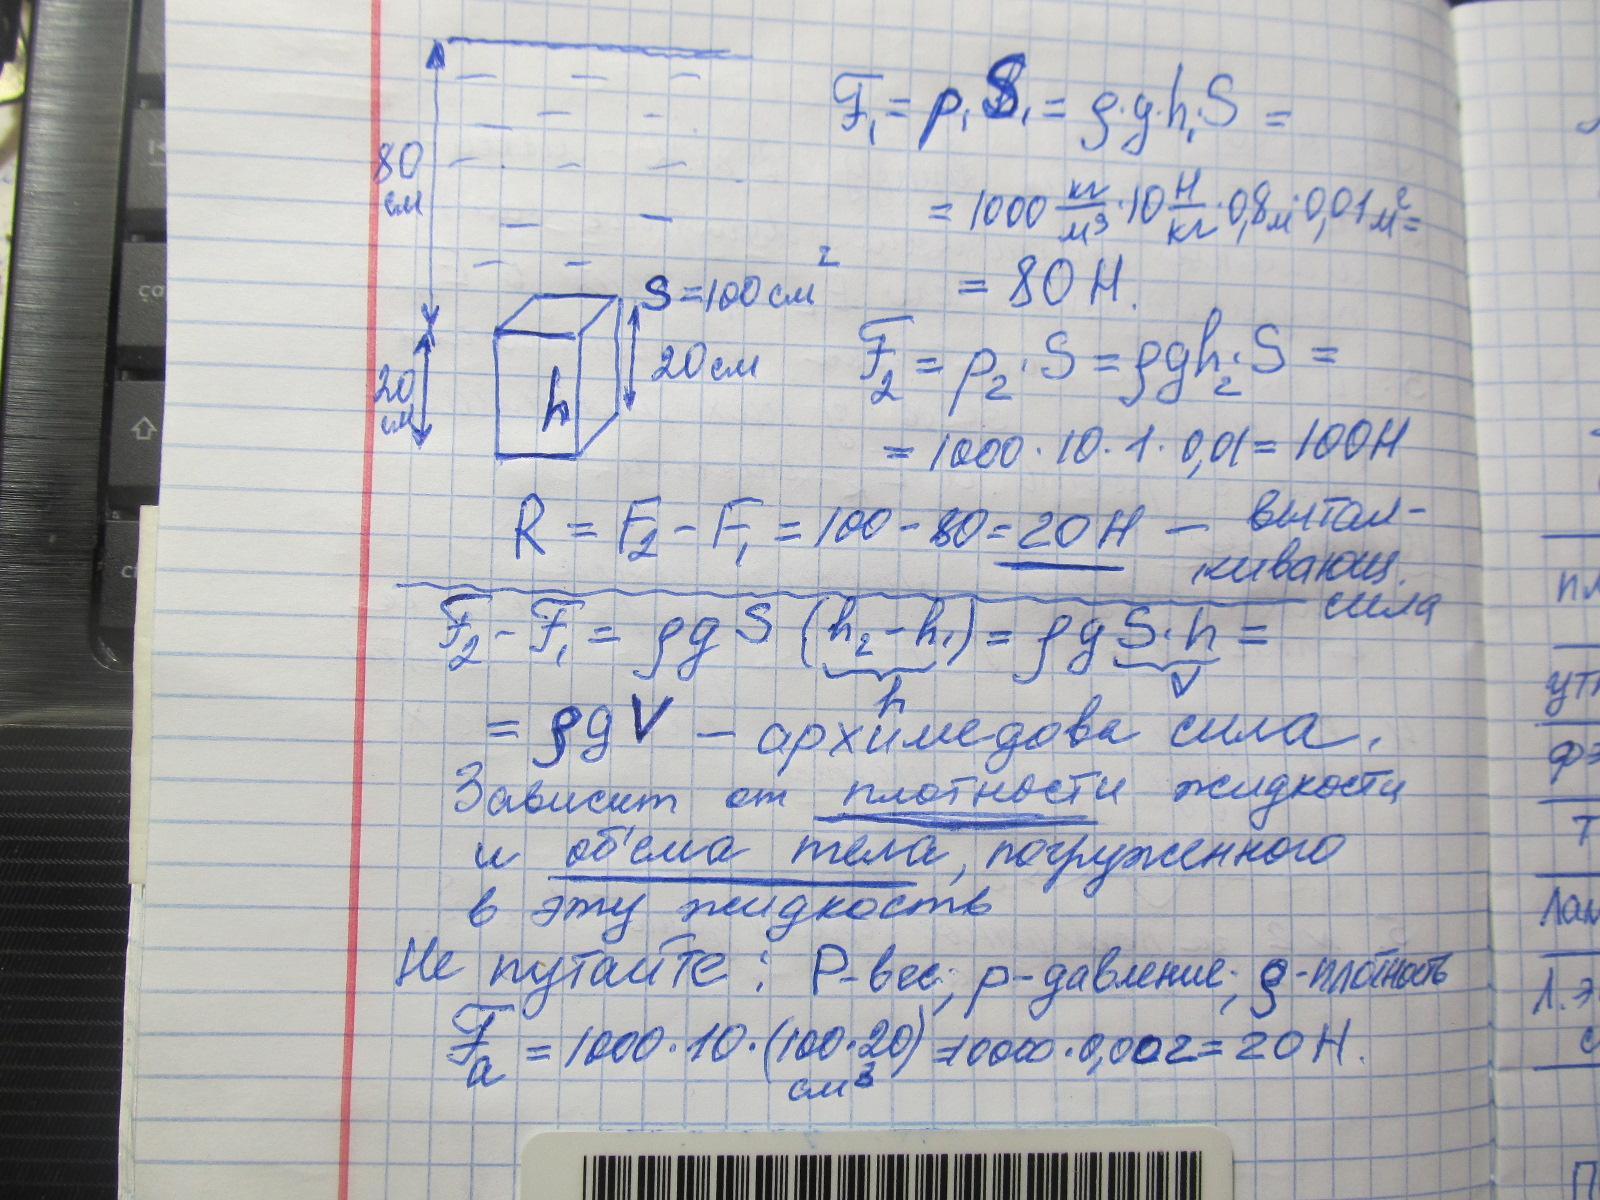 F₁ = p₁ S₁ = ρ·g·h₁·S =
80 см
= 1000 кг/м³ · 10 Н/кг · 0,8 м · 0,01 м² =
= 80 Н.
S = 100 см²
20 см
h
20 см
F₂ = p₂ · S = ρgh₂ · S =
= 1000 · 10 · 1 · 0,01 = 100 Н
R = F₂ – F₁ = 100 – 80 = 20 Н – вытал-
кивающ.
сила
F₂ – F₁ = ρg S (h₂ – h₁) = ρg S · h =
h V
= ρg V – архимедова сила.
Зависит от плотности жидкости
и об'ема тела, погруженного
в эту жидкость
Не путайте: P-вес; p-давление; ρ-плотность
Fₐ = 1000 · 10 · (100 · 20) = 10000 · 0,002 = 20 Н.
см³